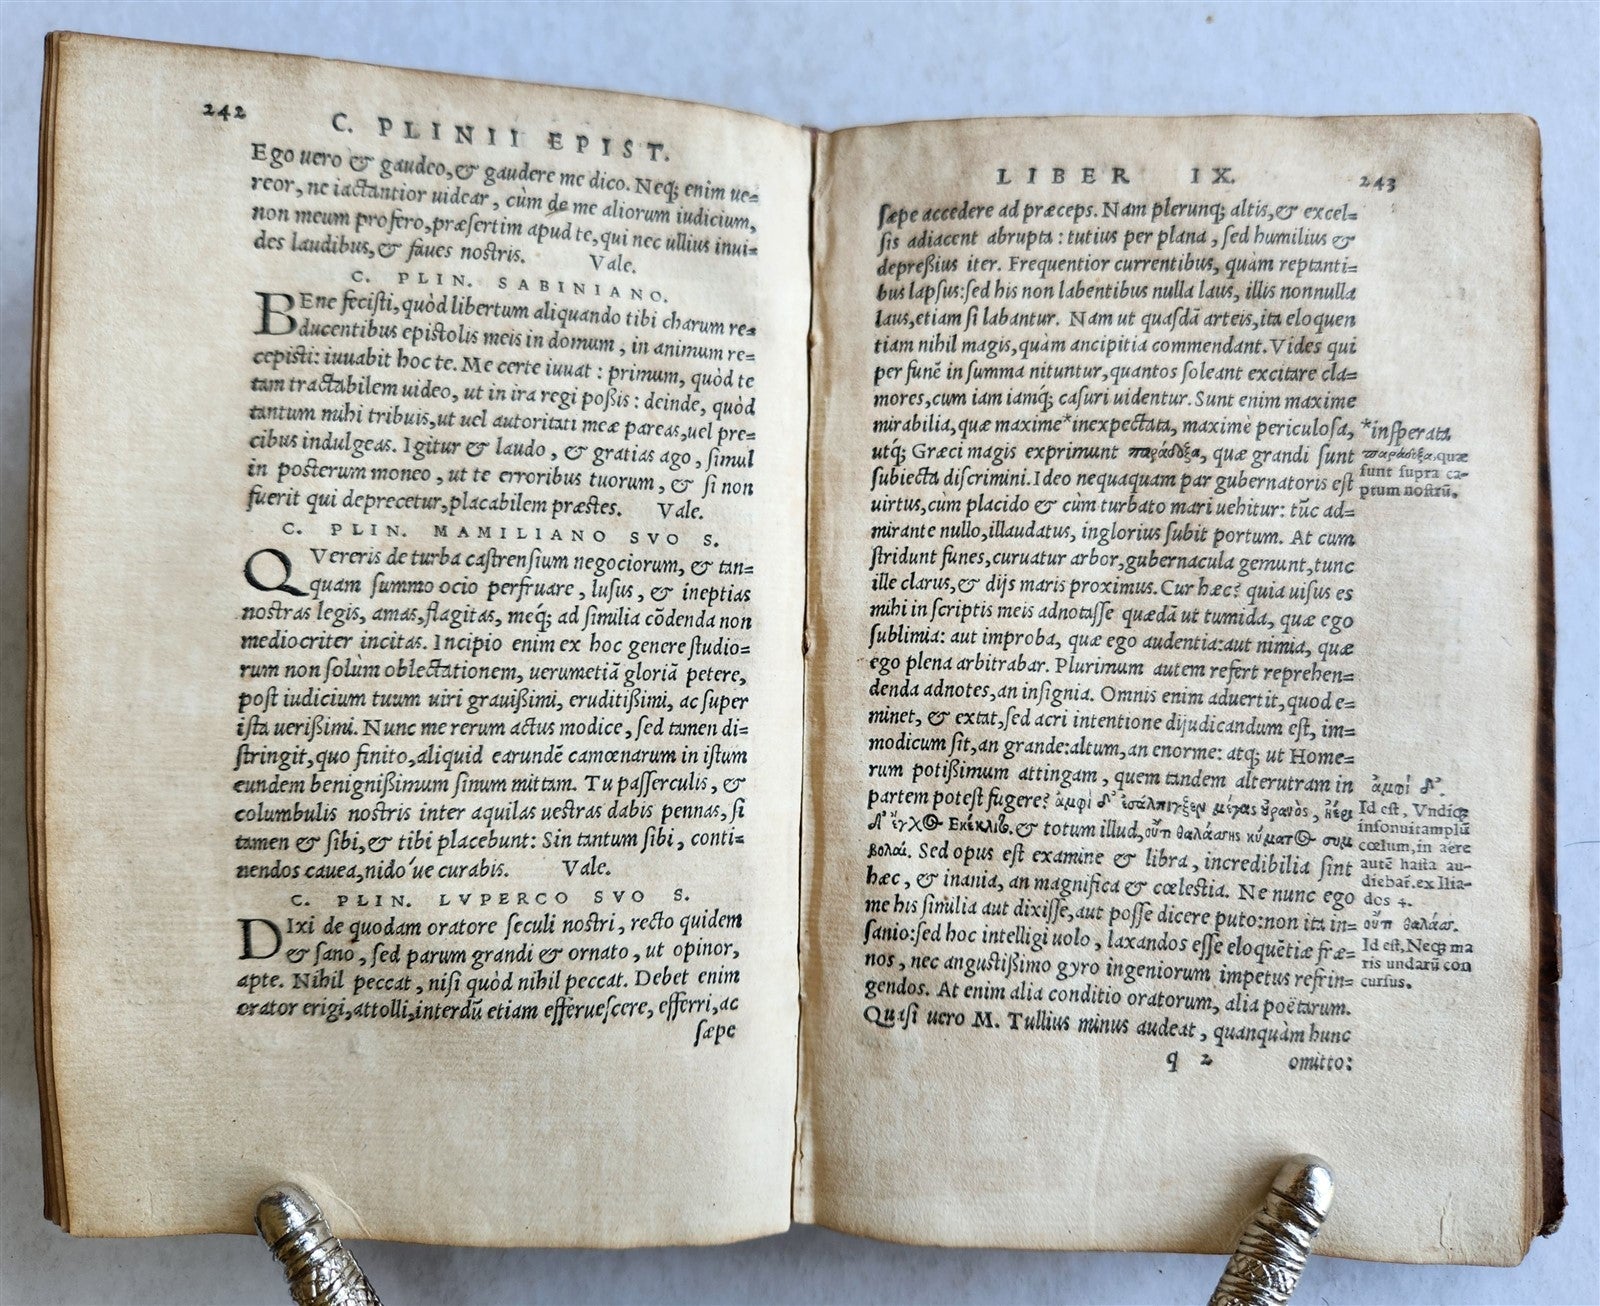 242
C. PLINII EPIST.
Ego uero & gaudeo, & gaudere me dico. Neq; enim ue=
reor, ne iactantior uidear, cùm de me aliorum iudicium,
non meum profero, præsertim apud te, qui nec ullius inui=
des laudibus, & faues nostris. Vale.
C. PLIN. SABINIANO.
BEne fecisti, quòd libertum aliquando tibi charum re=
ducentibus epistolis meis in domum, in animum re=
cepisti: iuuabit hoc te. Me certe iuuat: primum, quòd te
tam tractabilem uideo, ut in ira regi poßis: deinde, quòd
tantum mihi tribuis, ut uel autoritati meæ pareas, uel pre=
cibus indulgeas. Igitur & laudo, & gratias ago, simul
in posterum moneo, ut te erroribus tuorum, & si non
fuerit qui deprecetur, placabilem præstes. Vale.
C. PLIN. MAMILIANO SVO S.
QVereris de turba castrensium negociorum, & tan=
quam summo ocio perfruare, lusus, & ineptias
nostras legis, amas, flagitas, meq́; ad similia cõdenda non
mediocriter incitas. Incipio enim ex hoc genere studio=
rum non solùm oblectationem, uerumetiã gloriã petere,
post iudicium tuum uiri grauißimi, eruditißimi, ac super
ista uerißimi. Nunc me rerum actus modice, sed tamen di=
stringit, quo finito, aliquid earundẽ camœnarum in istum
eundem benignißimum sinum mittam. Tu passerculis, &
columbulis nostris inter aquilas uestras dabis pennas, si
tamen & sibi, & tibi placebunt: Sin tantum sibi, conti=
nendos cauea, nido ́ue curabis. Vale.
C. PLIN. LVPERCO SVO S.
DIxi de quodam oratore seculi nostri, recto quidem
& sano, sed parum grandi & ornato, ut opinor,
apte. Nihil peccat, nisi quòd nihil peccat. Debet enim
orator erigi, attolli, interdũ etiam efferuescere, efferri, ac
sæpe
LIBER IX.
243
sæpe accedere ad præceps. Nam plerunq; altis, & excel=
sis adiacent abrupta: tutius per plana, sed humilius &
depreßius iter. Frequentior currentibus, quàm reptanti=
bus lapsus: sed his non labentibus nulla laus, illis nonnulla
laus, etiam si labantur. Nam ut quasdã arteis, ita eloquen
tiam nihil magis, quàm ancipitia commendant. Vides qui
per funẽ in summa nituntur, quantos soleant excitare cla=
mores, cum iam iamq́; casuri uidentur. Sunt enim maxime
mirabilia, quæ maxime*inexpectata, maximè periculosa,
utq́; Græci magis exprimunt παράδοξα, quæ grandi sunt
subiecta discrimini. Ideo nequaquam par gubernatoris est
uirtus, cùm placido & cùm turbato mari uehitur: tũc ad=
mirante nullo, illaudatus, inglorius subit portum. At cum
stridunt funes, curuatur arbor, gubernacula gemunt, tunc
ille clarus, & dijs maris proximus. Cur hæc? quia uisus es
mihi in scriptis meis adnotasse quædã ut tumida, quæ ego
sublimia: aut improba, quæ ego audentia: aut nimia, quæ
ego plena arbitrabar. Plurimum autem refert reprehen=
denda adnotes, an insignia. Omnis enim aduertit, quod e=
minet, & extat, sed acri intentione dijudicandum est, im=
modicum sit, an grande: altum, an enorme: atq; ut Home=
rum potißimum attingam, quem tandem alterutram in
partem potest fugere? ἀμφὶ δ' ἐσάλπιγξεν μέγας οὐρανὸς, ἠέρι
δ' ἔγχος ἐκέκλιτο. & totum illud, οὔτι θαλάσσης κύματος συμ
βολαί. Sed opus est examine & libra, incredibilia sint
hæc, & inania, an magnifica & cœlestia. Ne nunc ego
me his similia aut dixisse, aut posse dicere puto: non ita in=
sanio: sed hoc intelligi uolo, laxandos esse eloquẽtiæ fræ=
nos, nec angustißimo gyro ingeniorum impetus refrin=
gendos. At enim alia conditio oratorum, alia poëtarum.
Quasi uero M. Tullius minus audeat, quanquàm hunc
q 2 omitto:
*insperata
παράδοξα, quæ
sunt supra ca=
ptum nostrũ.
ἀμφὶ δ'.
Id est, Vndiq;
insonuit amplũ
cœlum, in aere
autẽ hasta au=
diebat. ex Ilia=
dos 4.
οὔτι θαλάσ.
Id est, Neq; ma
ris undarũ con
cursus.